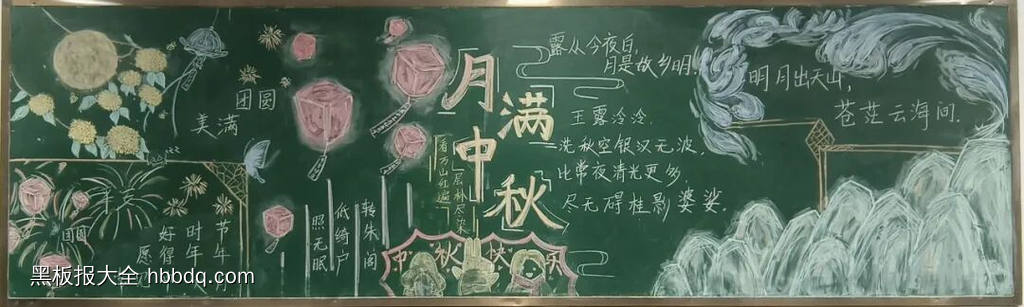 美满
团圆
月满中秋
看万山红遍
层林尽染
露从今夜白，
月是故乡明。
玉露泠泠，
洗秋空银汉无波，
比常夜清光更多，
尽无碍桂影婆娑。
明月出天山，
苍茫云海间。
转朱阁
低绮户
照无眠
好时节
愿得年年
团圆
中秋快乐
黑板报大全 hbbdq.com